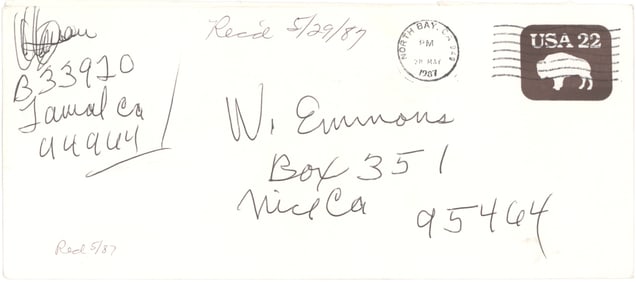 B33920
Tamal Ca
94964
Rec'd 5/29/87
NORTH BAY, CA 949
PM
28 MAY
1987
USA 22
W. Emmons
Box 351
Nice Ca
95464
Recd 5/87